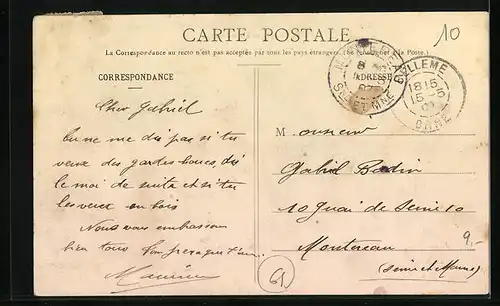 CARTE POSTALE
10
La Correspondance au recto n'est pas acceptée par tous les pays étrangers. (Se renseigner à la Poste.)
CORRESPONDANCE
ADRESSE
SEINE ET MNE
BELLEME
18 15
15 -5
ORNE
Cher Gabriel
Tu ne me dis pas si tu
veux des gardes boues, dis
le moi de suite et si tu
les veux en bois
Nous vous embrassons
bien tous Ton
Maurice
Monsieur
Gabriel Badin
10 Quai de Seine 10
Montereau
(Seine et Marne)
9,-
61